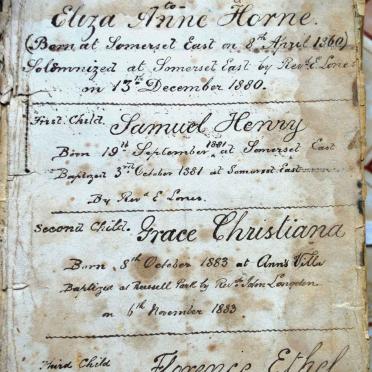 to
Eliza Anne Horne.
(Born at Somerset East on 8th April 1860)
Solemnized at Somerset East by Revd E. Lones
on 13th December 1880.
First Child. Samuel Henry
Born 19th September 1881 at Somerset East
Baptized 3rd October 1881 at Somerset East
By Revd E Lones.
Second Child. Grace Christiana
Born 8th October 1883 at Ann's Villa
Baptized at Russell Park by Revd John Longden
on 6th November 1883.
Third Child Florence Ethel